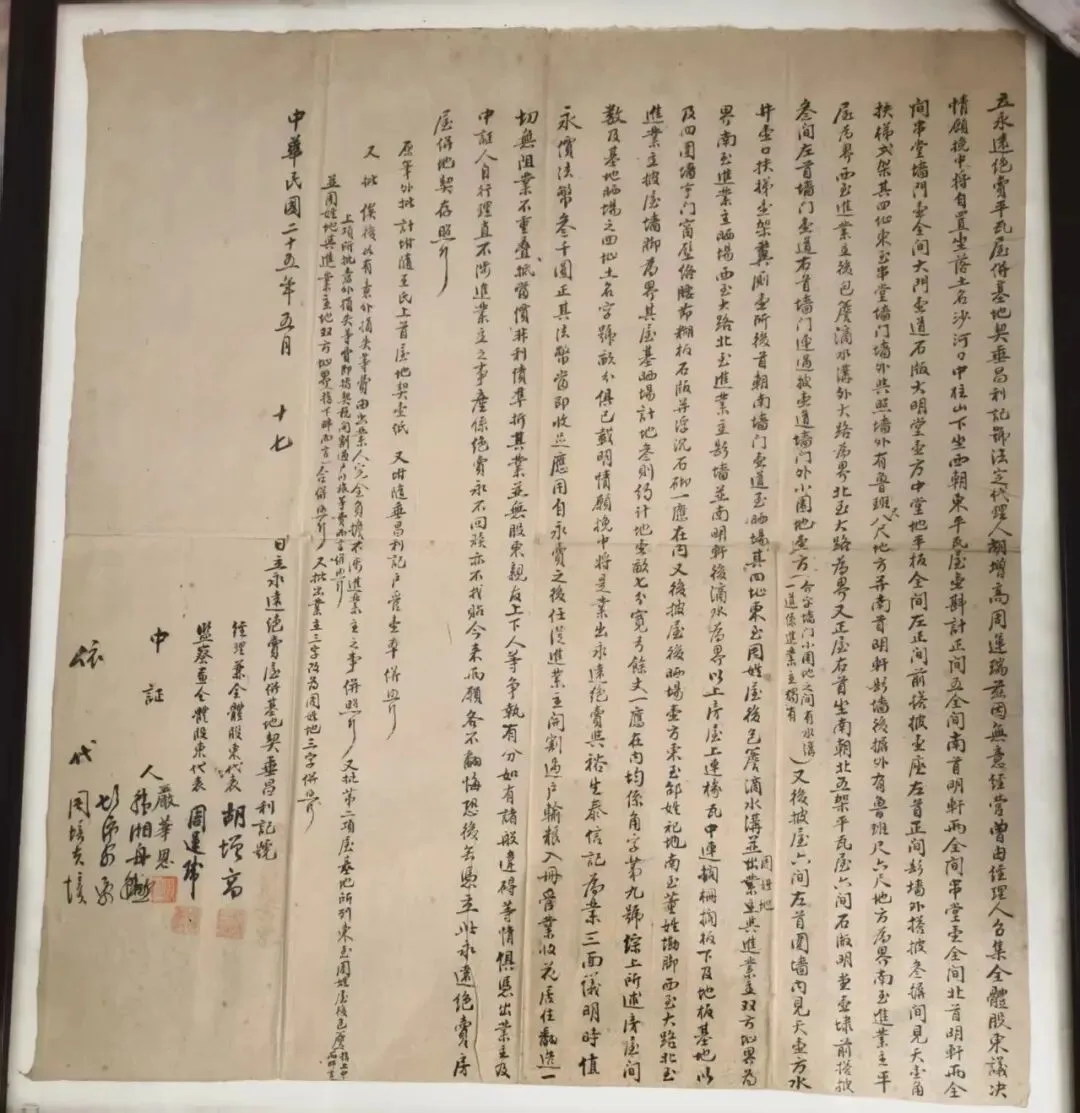 立永遠絕賣平瓦屋併基地契垂昌利記號法定代理人胡增高周運瑞茲因無意經營曾由經理人召集全體股東議決
情願挽中將自置坐落土名沙河口中柱山下坐西朝東平瓦屋壹斟計正間五全間南首明軒兩全間串堂壹全間北首明軒兩全
間串堂墻門壹全間大門壹道石版大明堂壹方中堂地平板全間左正間前搭披壹座左首正間影墻外搭披叁橫間見天壹角
扶梯弍架其四址東至串堂墻門墻外共照墻外有魯班尺八尺地方并南首明軒影墻後據外有魯班尺六尺地方為界南至進業主平
屋為界西至進業主後包簷滴水溝外大路為界北至大路為界又正屋右首坐南朝北五架平瓦屋六間石版明堂壹埭前搭披
叁間左首墻門壹道右首墻門連過披壹道墻門外小園地壹方(合字墻門小園地之間有水溝一道係進業主獨有)又後披屋六間左首圍墻內見天壹方水
井壹口扶梯壹架糞厠壹所後首朝南墻門壹道至晒場其四址東至周姓屋後包簷滴水溝並出業主周姓地與進業主双方地界為
界南至進業主晒場西至大路北至進業主影墻並南明軒後滴水為界以上房屋上連椽瓦中連擱柵擱板下及地板基地以
及四圍墻宇門窗壁絡腰帘糊板石版并浮沉石脚一應在內又後披屋後晒場壹方東至邵姓祀地南至董姓墈脚西至大路北至
進業主披屋墻脚為界其屋基晒場計地叁則約計地壹畝七分寬弓餘丈一應在內均係角字第九號綜上所述房屋間
數及基地晒場之四址土名字號畝分俱已載明情願挽中將是業出永遠絕賣與裕生泰信記為業三面議明時值
永價法幣叁千圓正其法幣當即收足應用自永賣之後任從進業主開割過戶輸粮入冊管業收花居住翻造一
切無阻業不重叠抵當價非利債準折其業並無股東親友上下人等爭執有分如有諸般違碍等情俱憑出業主及
中証人自行理直不涉進業主之事產係絕賣永不回贖亦不找貼今來兩願各不翻悔恐後無憑立此永遠絕賣房
屋併地契存照
原筆外批計坿隨王氏上首屋地契壹紙 又坿隨垂昌利記戶管壹本併照
又批 俟後以有意外損失等費由出業人完全負擔不涉進業主之事併照 又批第二項屋基地所列東至周姓屋後包簷
上項所批意外損失等費即指契稅開割過戶粮等費而言併照
並周姓地與進業主地双方地界指下畔而言合併照 又批出業主三字改為周姓地三字併照
中華民國二十五年五月 十七 日立永遠絕賣屋併基地契垂昌利記號
經理兼全體股東代表 胡增高
監察兼全體股東代表 周運瑞
中証人 嚴華恩
依代